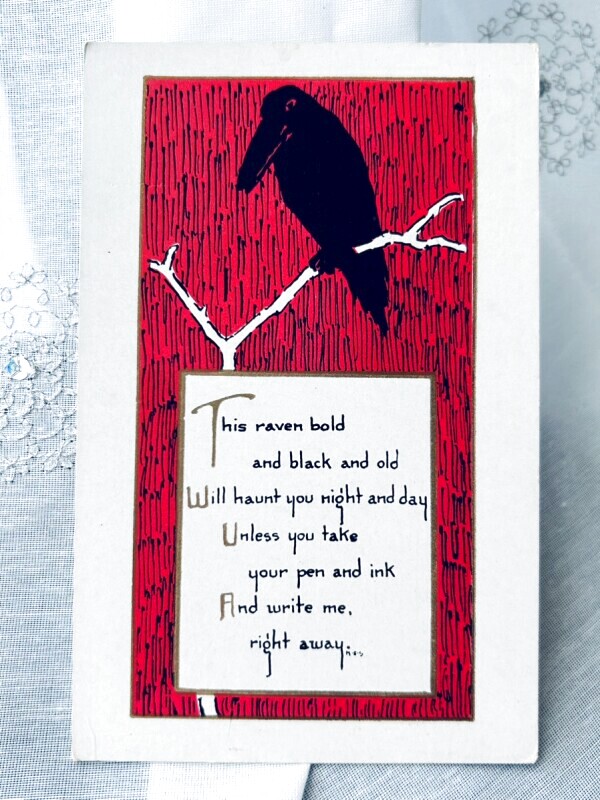 This raven bold
and black and old
Will haunt you night and day
Unless you take
your pen and ink
And write me,
right away.